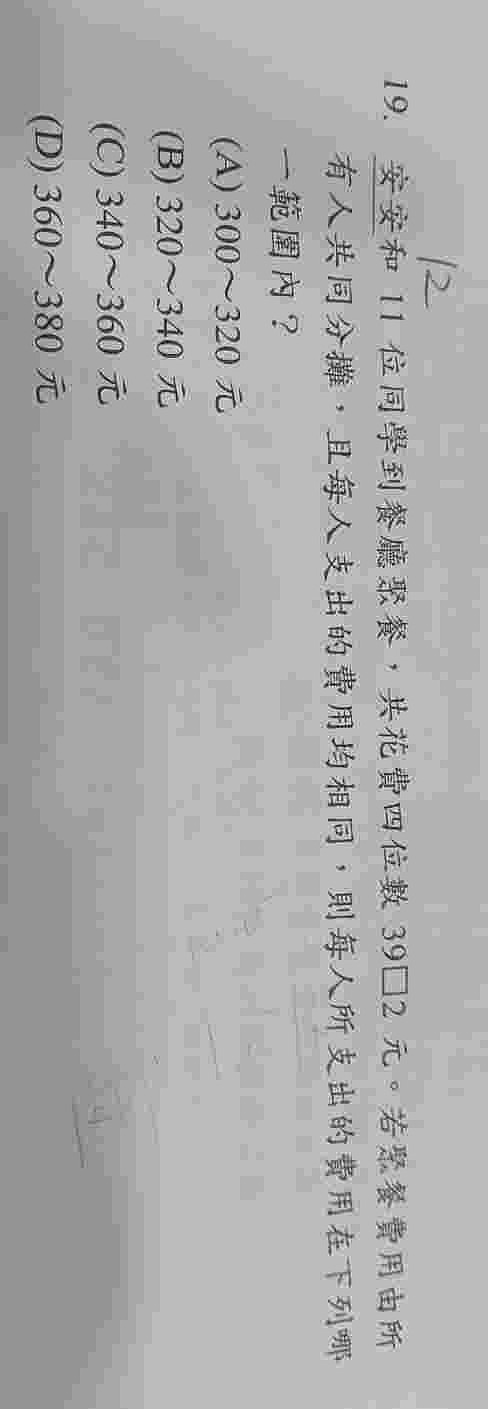 12
19. 安安和 11 位同學到餐廳聚餐，共花費四位數 39□2 元。若聚餐費用由所
有人共同分攤，且每人支出的費用均相同，則每人所支出的費用在下列哪
一範圍內？
(A) 300～320 元
(B) 320～340 元
(C) 340～360 元
(D) 360～380 元